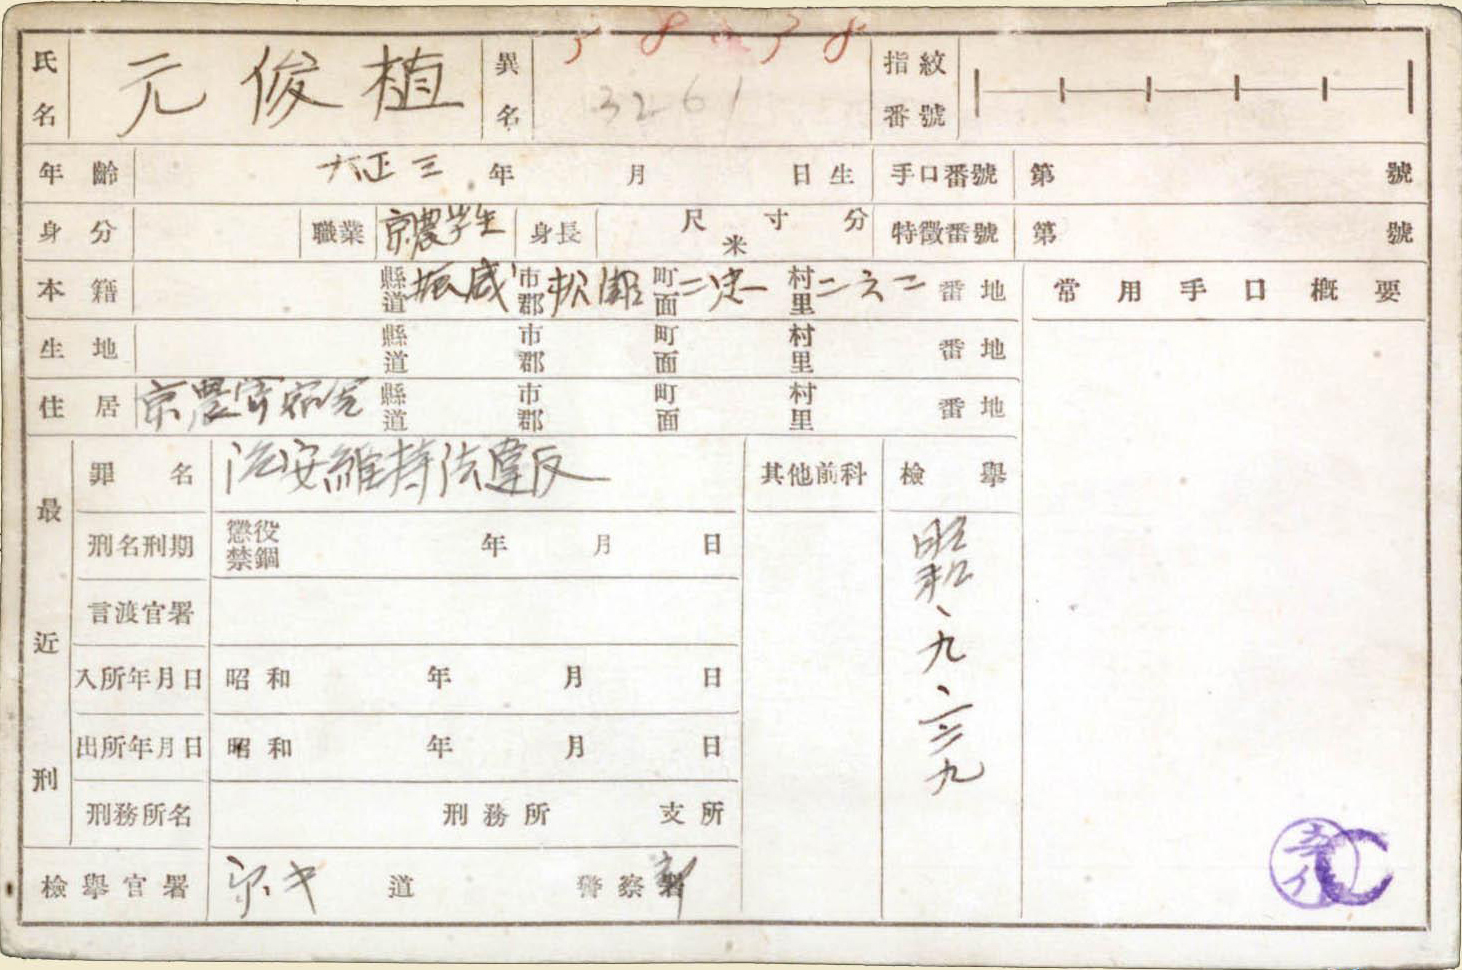 5 8 3 8
氏名 元俊植 異名 3261 指紋番號
年齡 大正三年 月 日生 手口番號 第 號
身分 職業 京農学生 身長 尺 寸 分 米 特徵番號 第 號
本籍 縣道 振威 市郡 松 町面 二忠一 村里 二六二 番地 常用手口槪要
生地 縣道 市郡 町面 村里 番地
住居 京農寄宿舍 縣道 市郡 町面 村里 番地
最近刑 罪名 治安維持法違反 其他前科 檢擧
刑名刑期 懲役 禁錮 年 月 日 昭和、九、
言渡官署
入所年月日 昭和 年 月 日
出所年月日 昭和 年 月 日
刑務所名 刑務所 支所
檢擧官署 京キ 道 警察署